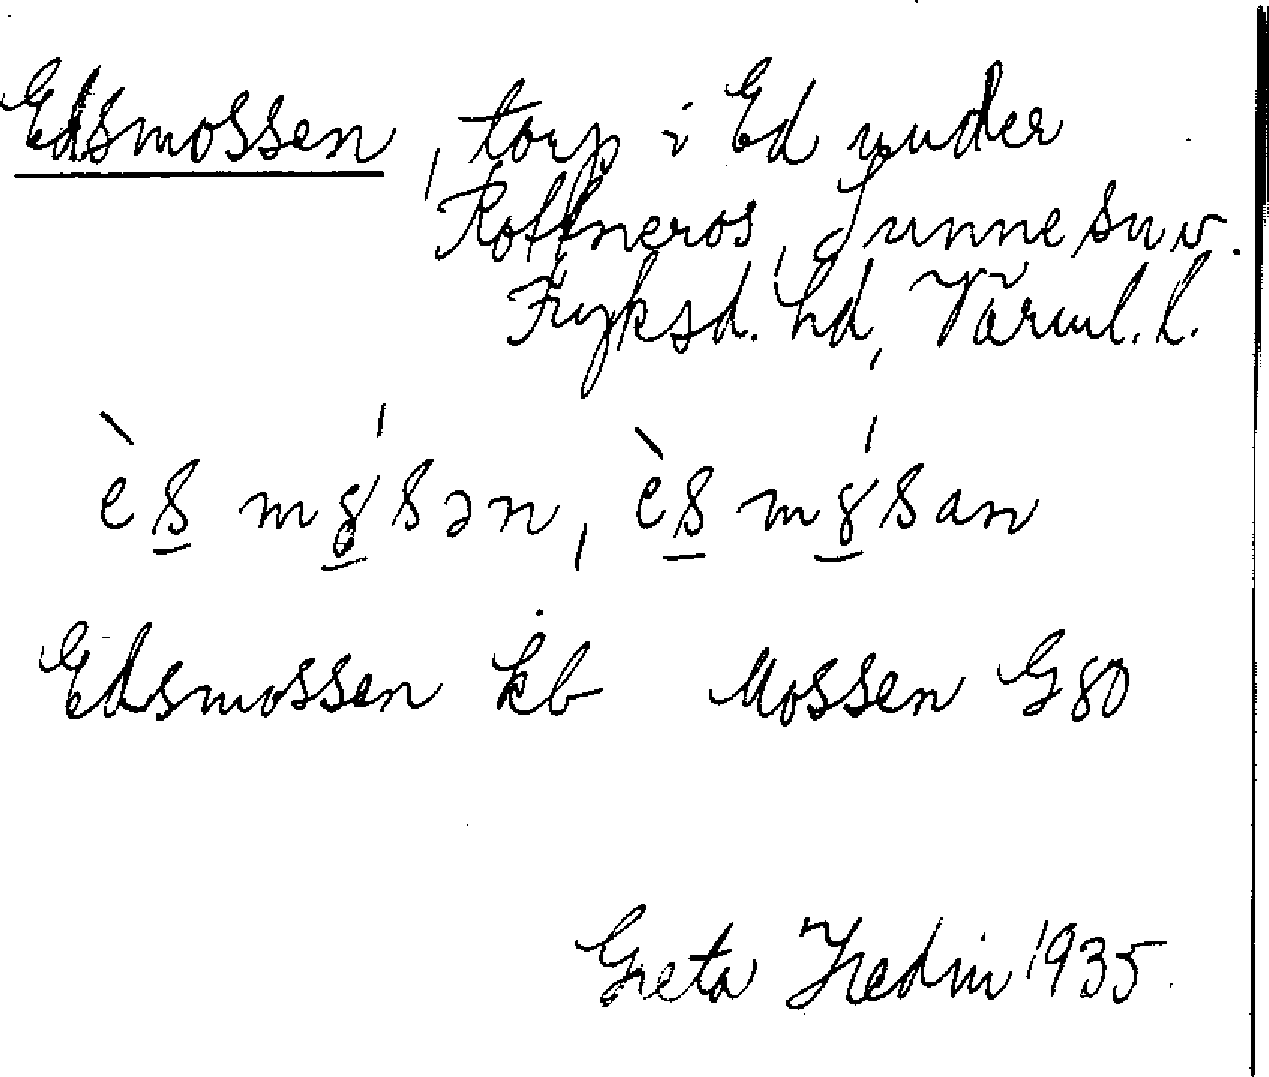 Edsmossen, torp i Ed under
Rottneros, Sunne sn v.
Fryksd. hd, Värml. l.
Edsmossen kb Mossen G80
Greta Hedin 1935.